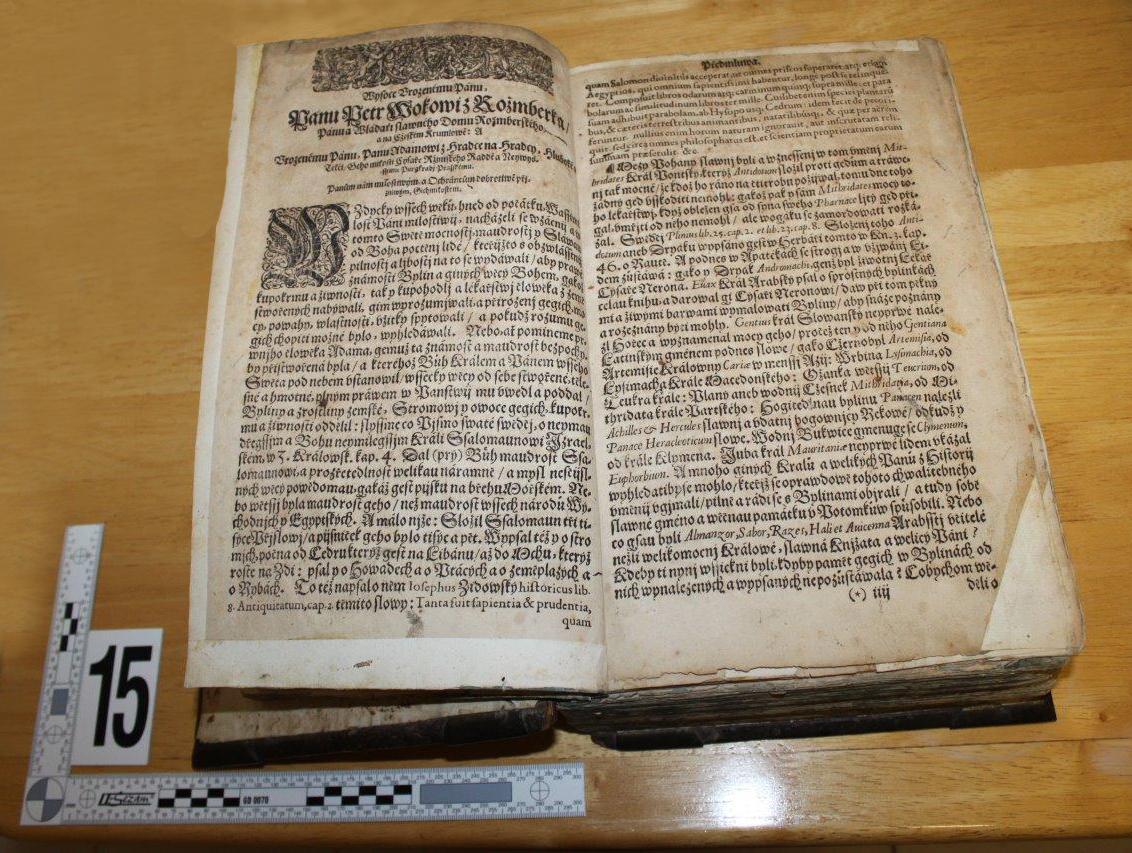 Wysoce Vrozenému Pánu,
Panu Petr Wokowi z Rozmberka/
Pánu a Wladaři slawného Domu Rozmberského,
a na Cžeském Krumlowě: A
Vrozenému Pánu, Panu Adamowi z Hradce na Hradcy,
Telči, Geho milosti Cýsaře Ržimského Raddě a Neywyš-
ššímu Purgkrabí Pražskému.
Pánům nám milostiwým, a Ochráncům dobrotiwě přj-
zniwým,
Wždycky wssech wěků, hned od počátku,
lost Páni milostiwij, nacházeli se w známij a
tomto Swětě mocnostij, maudrostij y Sláwau
od Boha poctěnj lidé/ kteřjžto s obzwlásstnj
pilnostij a ljbostij na to se wydáwali/ aby prawé
známosti Bylin a giných wěcý Bohem, gakož
kupokrmu a žiwnosti, tak y kupohodlj a lékařstwj člowěka z země
stwořených nabýwali, gim wyrozumjwali a přirození gegich, mo-
cy, powahy, wlastnosti, vžitky spytowali/ a pokudž rozumu ge-
gich chopiti možné bylo, wyhledáwali. Nebo ať pomineme pr-
wnjho člowěka Adama, gemuž ta známost a maudrost bezpochy-
by přistwořená byla/ a kteréhož Bůh Králem a Pánem wsseho
Swěta pod nebem vstanowil/ wssecky wěcy od sebe stwořené, těle-
sné a hmotné, plným práwem w Panstwij mu vwedl a poddal/
Byliny a zrostliny zemské, Stromowj y owoce gegich, kupokr-
mu a žiwnosti oddělil: slyssjme co Pjsmo swaté swědčj, o neymau-
dřegssjm a Bohu neymilegssjm Králi Ssalomaunowi Jzrael-
ském, w 3. Králowsk. kap. 4. Dal (prý) Bůh maudrost Ssa-
lomaunowi, a prozřetedlnost welikau náramně/ a mysl nesčjsl-
ných wěcý powědomau, gakáž gest pjsku na břehu Mořském. Ne-
bo wětssj byla maudrost geho/ než maudrost wssech národů Wý-
chodnjch y Egyptských. A málo njže: Složil Ssalomaun tři ti-
sýce Přjslowj/ a pjsniček geho bylo tisýc a pět. Wypsal též y o stro
mjch, počna od Cedru kterýž gest na Libánu/ až do Mchu, kterýž
roste na Zdi: psal y o Howadech a o Ptácých a o zeměplazých a
o Rybách. To též napsal o něm Iosephus Židowský historicus lib.
8. Antiquitatum, cap. 2. těmito slowy: Tanta fuit sapientia & prudentia,
quam
Předmluwa.
quam Salomon diuinitus acceperat aut omnes priscos superaret, atq; etiam
Aegyptios, qui omnium sapientissimi habentur, longe post se relinque-
ret. Composuit libros odarum atq; carminum quinq; supra mille: et para
bolarum ac similitudinum libros ter mille. Cuilibet enim speciei plantarũ
suam adhibuit parabolam, ab Hysopo usq; Cedrum: idem fecit de pecori-
bus, & cæteris terrestribus animantibus, natatilibusq;, & quæ per aërem
feruntur. nullius enim horum naturam ignorauit, aut inscrutatam reli-
quit, sed de omnibus philosophatus est, et scientiam proprietatum earum
summam præsetulit. &c.
Mezy Pohany slawnj byli a wznessenj w tom vměnj Mit-
hridates Král Pontský, kterýž Antidotum složil proti gedům a tráwe-
nj tak mocné/ že kdož ho ráno na čtitrobu požjwal, tomu dne toho
žádný ged vsskoditi nemohl: gakož pak y sám Mithridates mocý to-
ho lékařstwj, když obležen gsa od syna swého Pharnace ljtý ged pře-
gal, vmřjti od něho nemohl/ ale wogáku se zamordowati rozká-
zal. Swědčj Plinius lib. 25. cap. 2. et lib. 23. cap. 8. Složenj toho Anti-
dotum aneb Dryáku wypsáno gest w Herbáři tomto w Kn. 2. kap.
46. o Rautě. A podnes w Apatékách se strogj a w vžjwánj Li-
dem zůstáwá: gako y Dryák Andromachi, genž byl žiwotnj Lékař
Cýsaře Nerona. Euax Král Arabský psal o sprostných bylinkách
celau knihu, a darowal gj Cýsaři Neronowi/ daw při tom pěkný
mi a žiwými barwami wymalowati Byliny/ aby snáze poznány
a rozeznány býti mohly. Gentius král Slowanský neyprwé nale-
zl Hořec a wyznamenal mocy geho/ protež ten y od něho Gentiana
Latinským gménem podnes slowe/ gako Cžernobyl Artemisia, od
Artemisie Králowny Cariæ w menssj Azij: Wrbina Lysimachia, od
Lyzimacha Krále Macedonského: Ožanka wětssij Teucrium, od
Teukra krále: Planý aneb wodnij Cžesnek Mithridatia, od Mi-
thridata krále Partského: Hogitedlnau bylinu Panacen nalezli
Achilles & Hercules slawnj a vdatnj bogownjcy Řekowé/ odkudž y
Panace Heracleoticum slowe. Wodnj Bukwice gmenuge se Clymenum,
od krále Klymena. Juba král Mauritaniæ neyprwé lidem vkázal
Euphorbium. A mnoho giných Králů a welikých Pánů z Historij
wyhledati by se mohlo/ kteřjž se oprawdowě tohoto chwalitebného
vměnj vgjmali/ pilně a rádi se s Bylinami objrali/ a tudy sobě
slawné gméno a wěčnau památku v Potomkůw spůsobili. Nebo
co gsau byli Almanzor, Sabor, Razes, Hali et Auicenna Arabsstj včitelé
nežli welikomocnj Králowé, slawná Knjžata a welicý Páni?
Kdeby ti nynj wssickni byli, kdyby paměť gegich w Bylinách, od
nich wynalezených a wypsaných nepozůstáwala? Cobychom wě-
(*) iiij
děli o
15
GD 0070